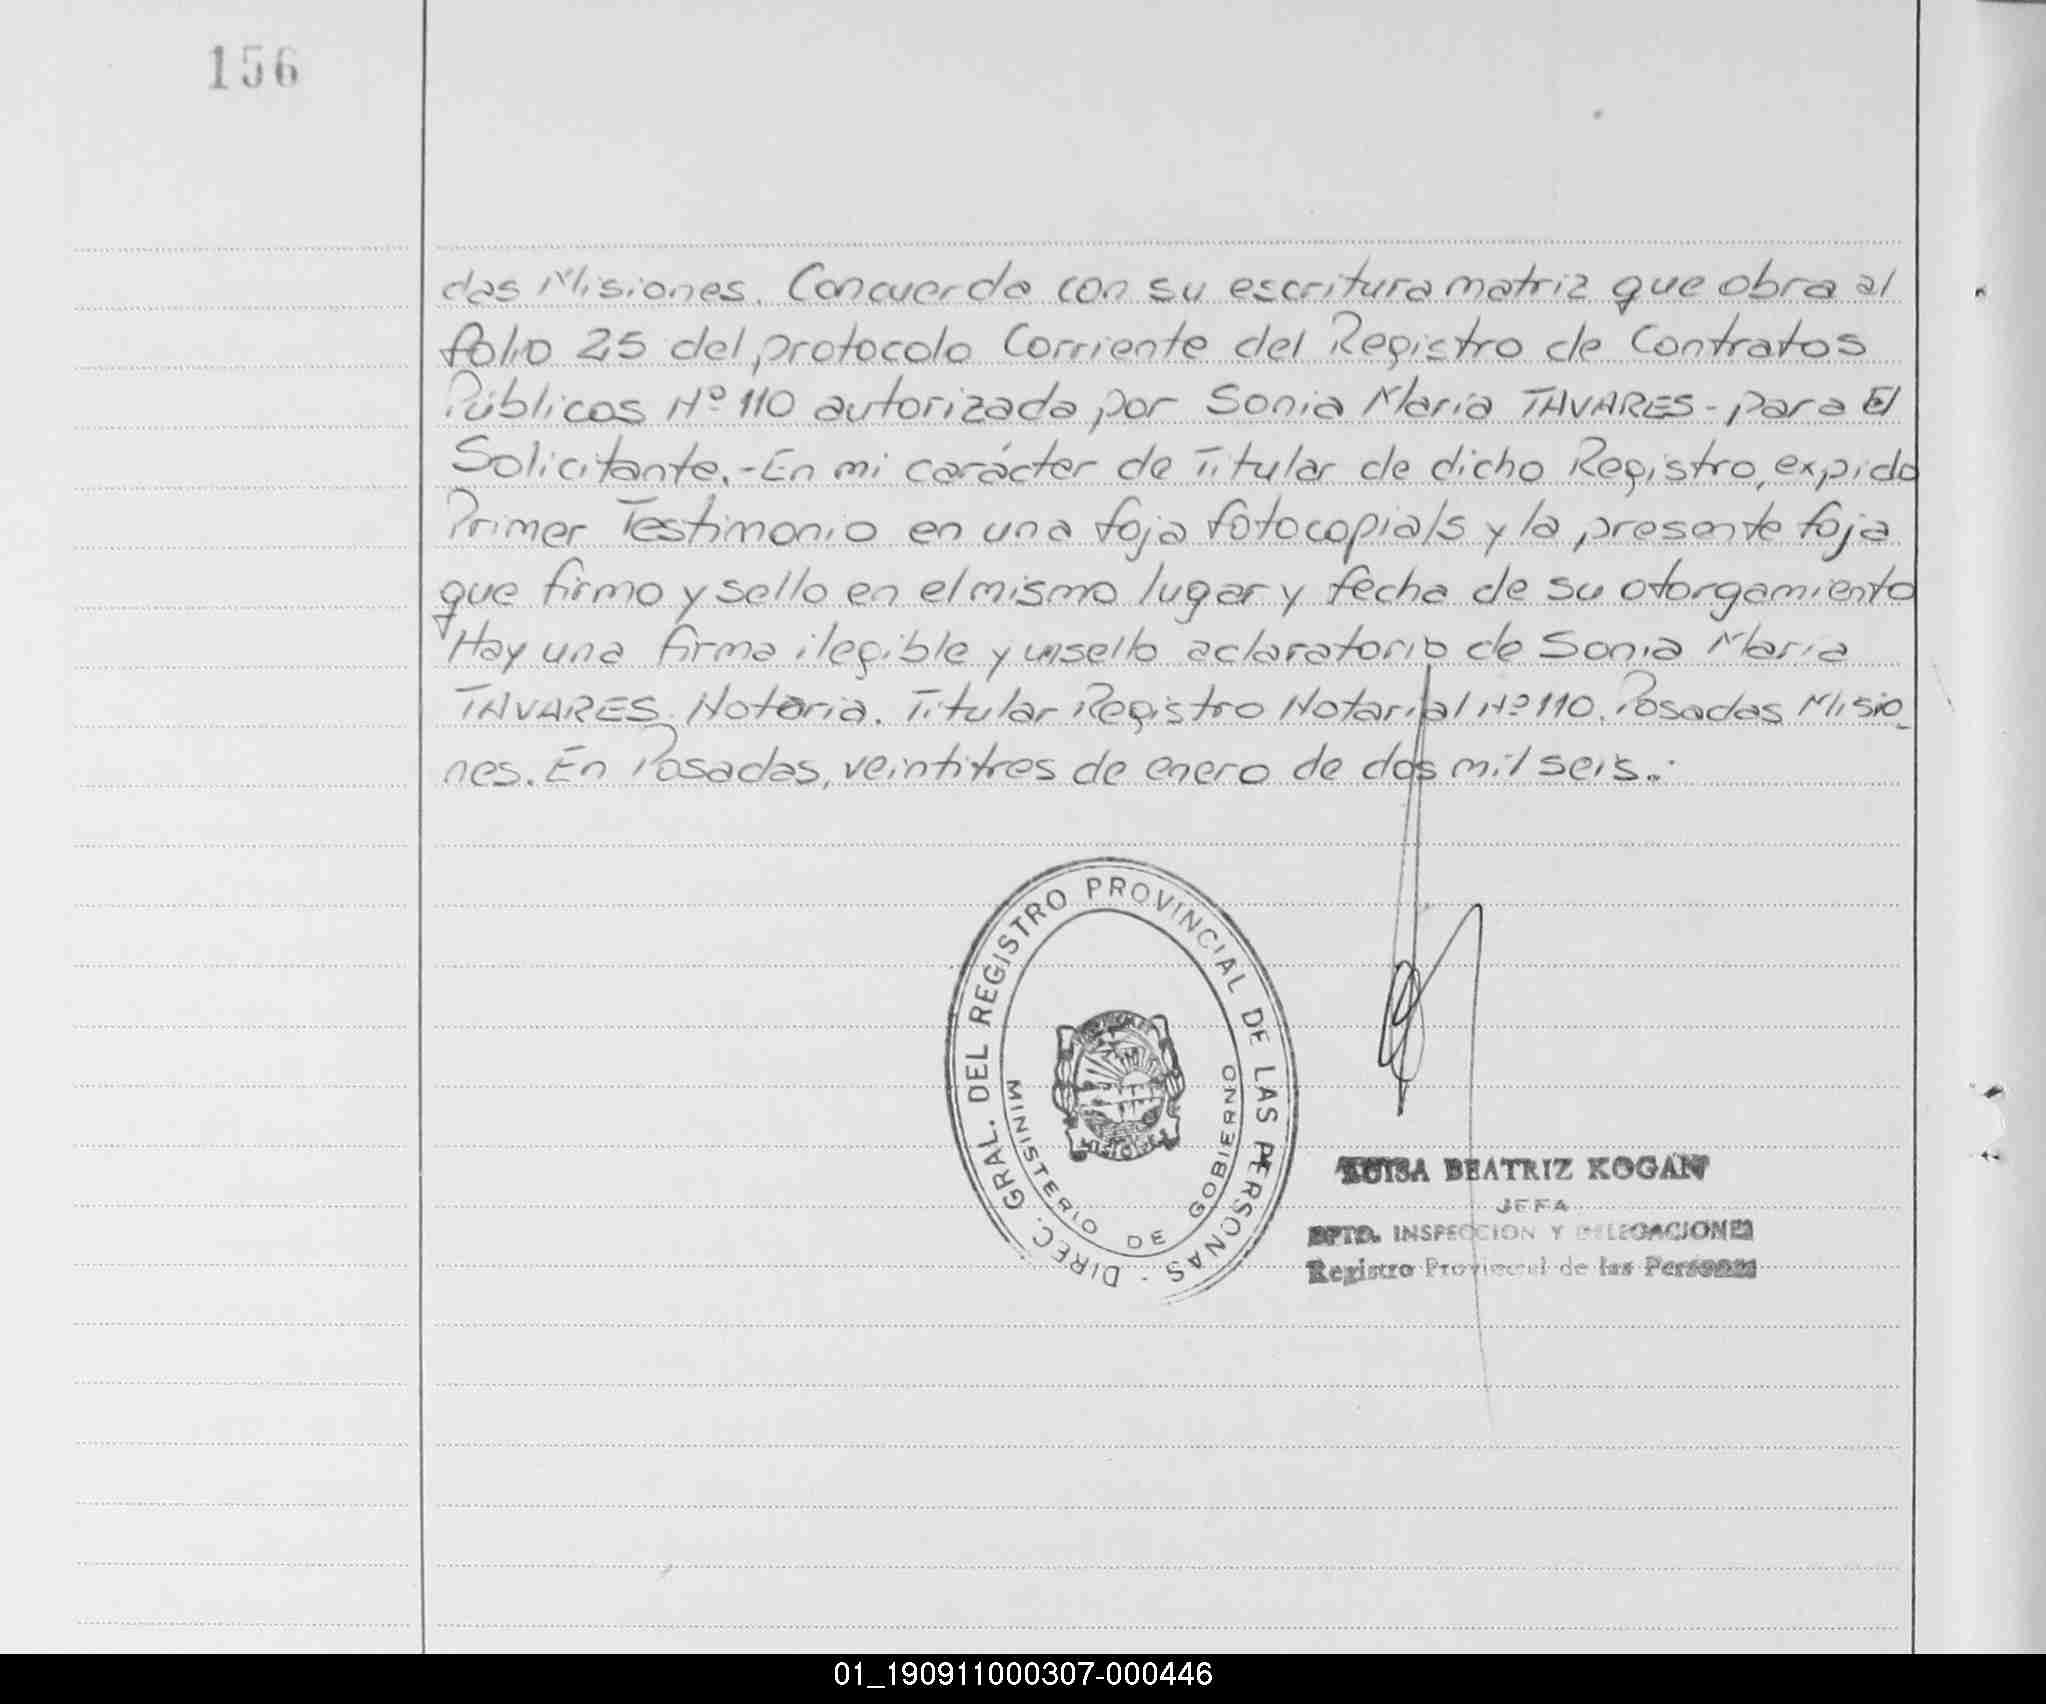 156
das Misiones. Concuerda con su escritura matriz que obra al
folio 25 del protocolo Corriente del Registro de Contratos
Públicos Nº 110 autorizada por Sonia Maria TAVARES - para El
Solicitante. - En mi carácter de Titular de dicho Registro, expido
Primer Testimonio en una foja fotocopia/s y la presente foja
que firmo y sello en el mismo lugar y fecha de su otorgamiento
Hay una firma ilegible y un sello aclaratorio de Sonia Maria
TAVARES. Notaria. Titular Registro Notarial Nº 110. Posadas Misio_
nes. En Posadas, veintitres de enero de dos mil seis..-
DIREC. GRAL. DEL REGISTRO PROVINCIAL DE LAS PERSONAS -
MINISTERIO DE GOBIERNO
LUISA BEATRIZ KOGAN
JEFA
DPTO. INSPECCION Y DELEGACIONES
Registro Provincial de las Personas
01_190911000307-000446